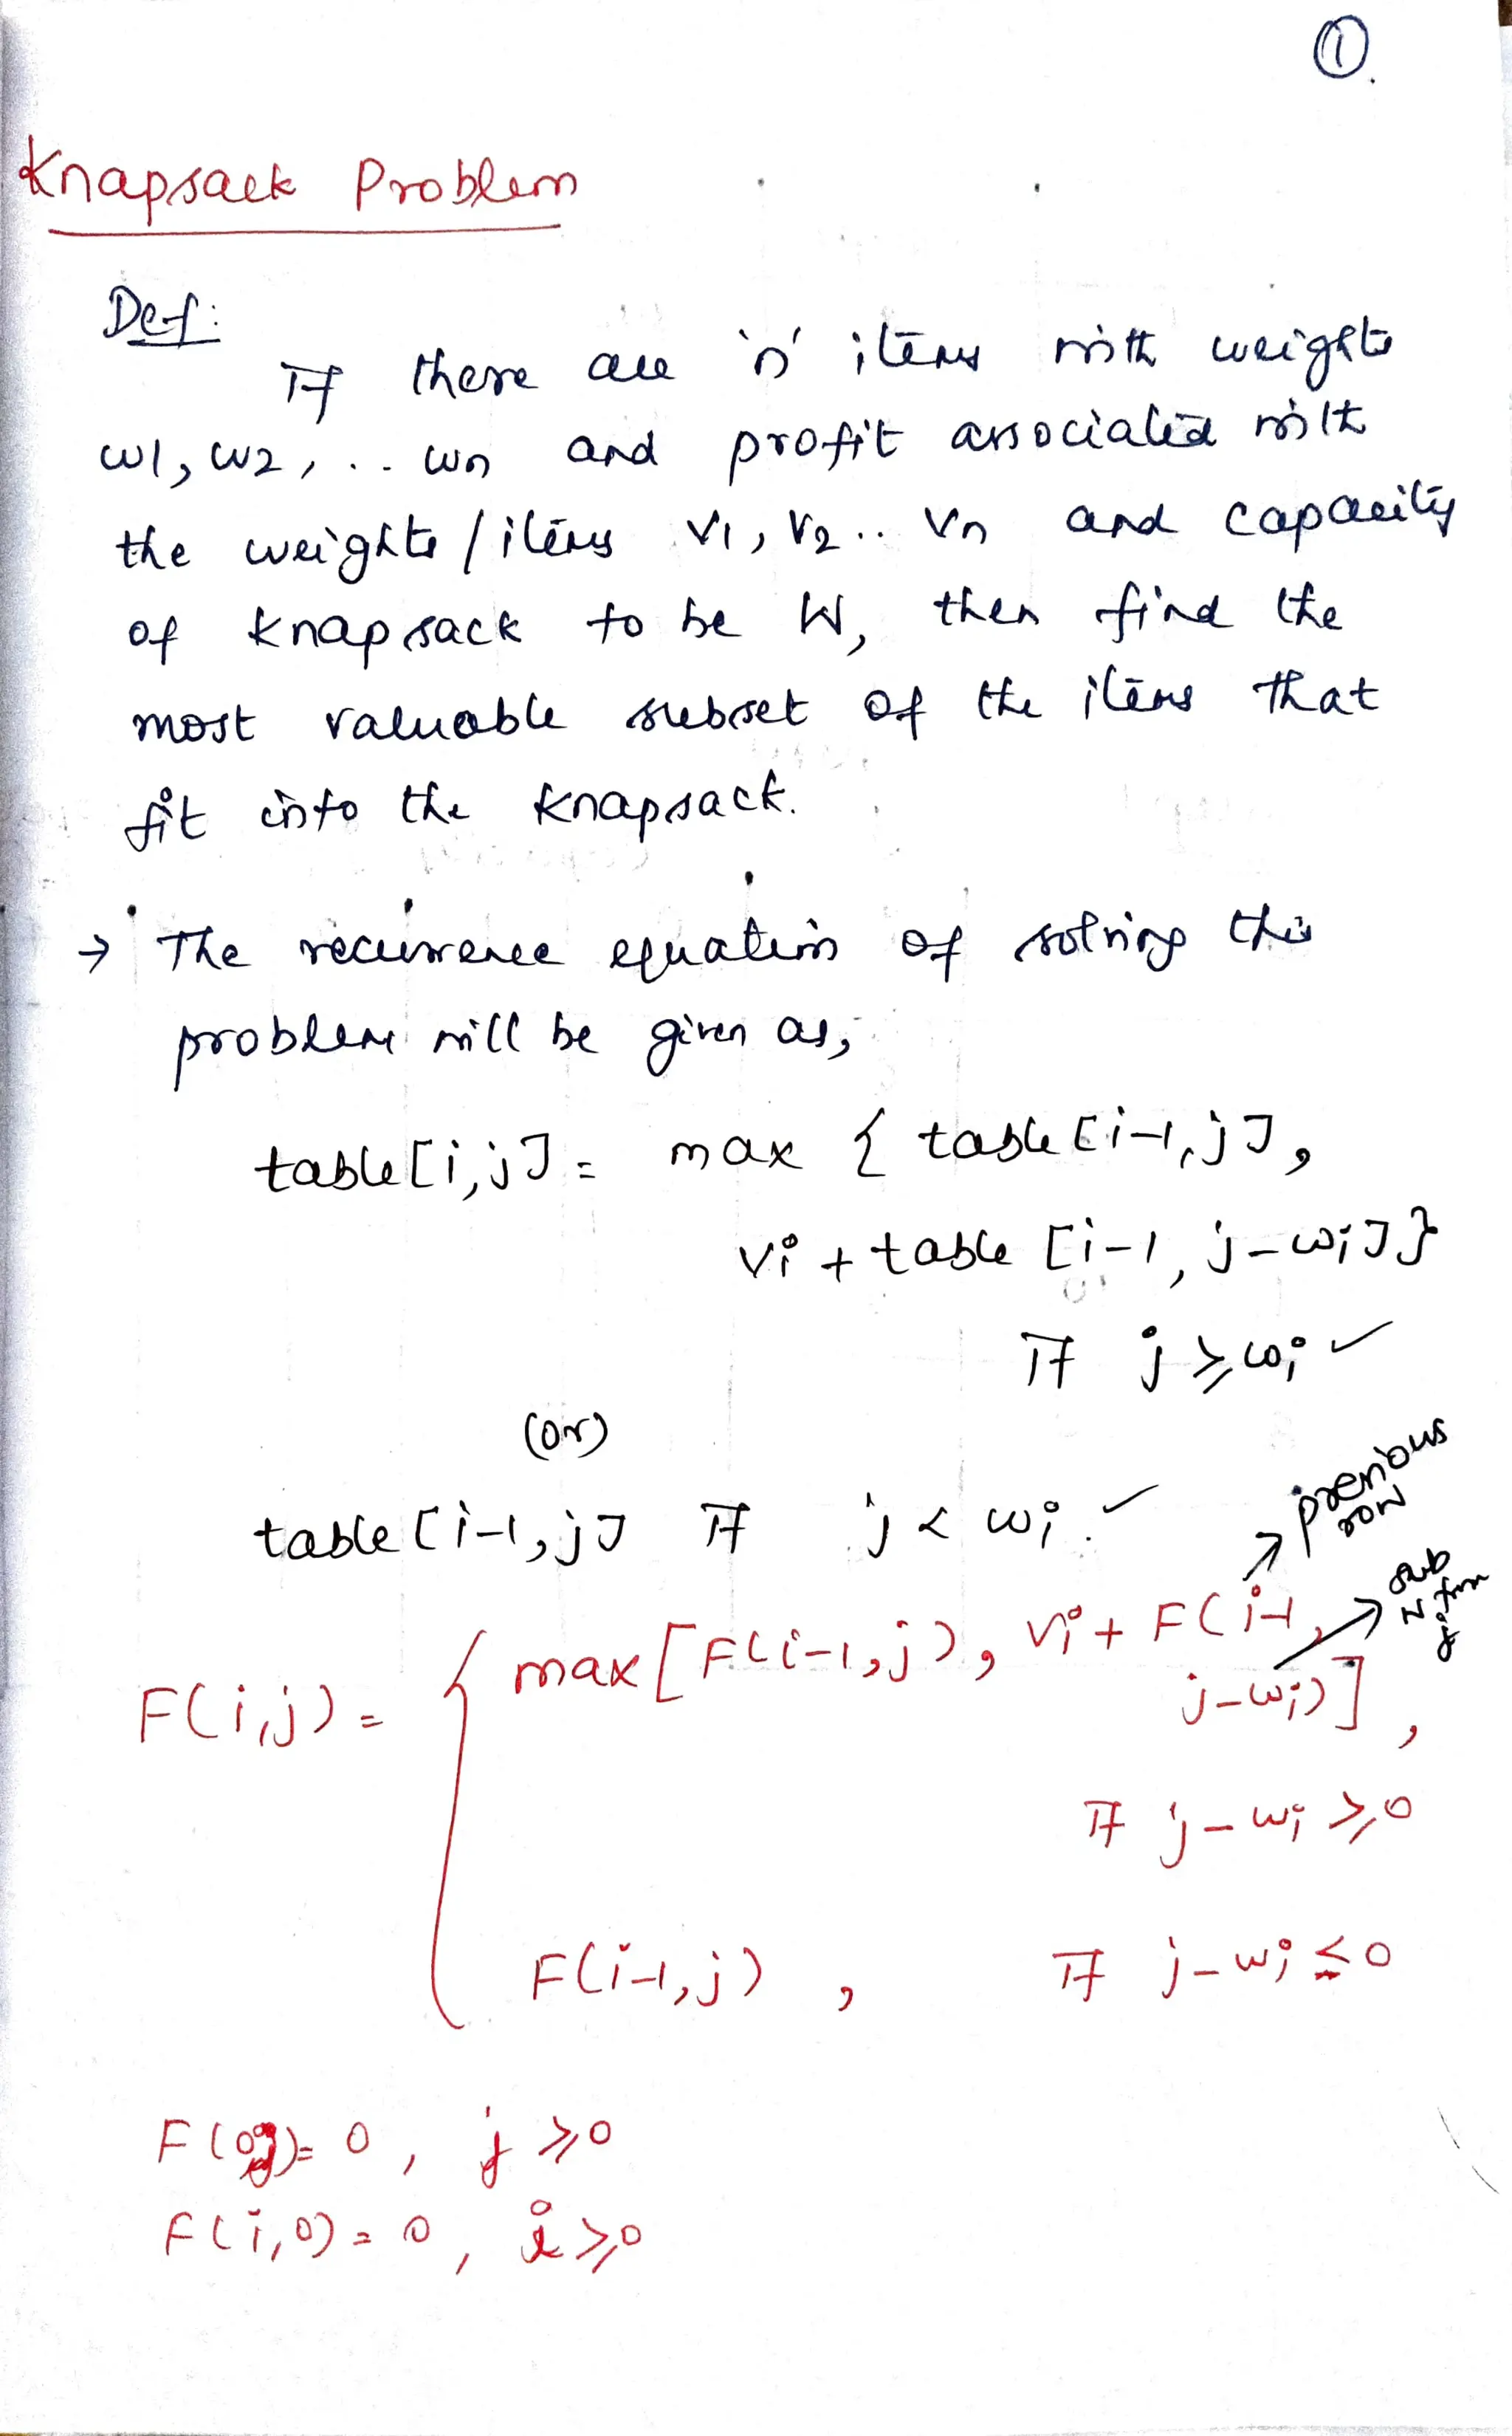 ①.
Knapsack Problem
Def:
If there are 'n' items with weights
w1, w2, .. wn and profit associated with
the weights / items v1, v2 .. vn and capacity
of knapsack to be W, then find the
most valuable subset of the items that
fit into the knapsack.
→ The recurrence equation of solving this
problem will be given as,
table[i,j] = max { table [i-1,j],
vi + table [i-1, j-wi]}
If j ≥ wi ✓
(or)
table [i-1,j] If j < wi ✓
previous
row
sub
from
j
F(i,j) = { max [F(i-1,j), vi + F(i-1,
j-wi)],
If j-wi ≥ 0
F(i-1,j), If j-wi ≤ 0
F(0j) = 0, j ≥ 0
F(i,0) = 0, i ≥ 0